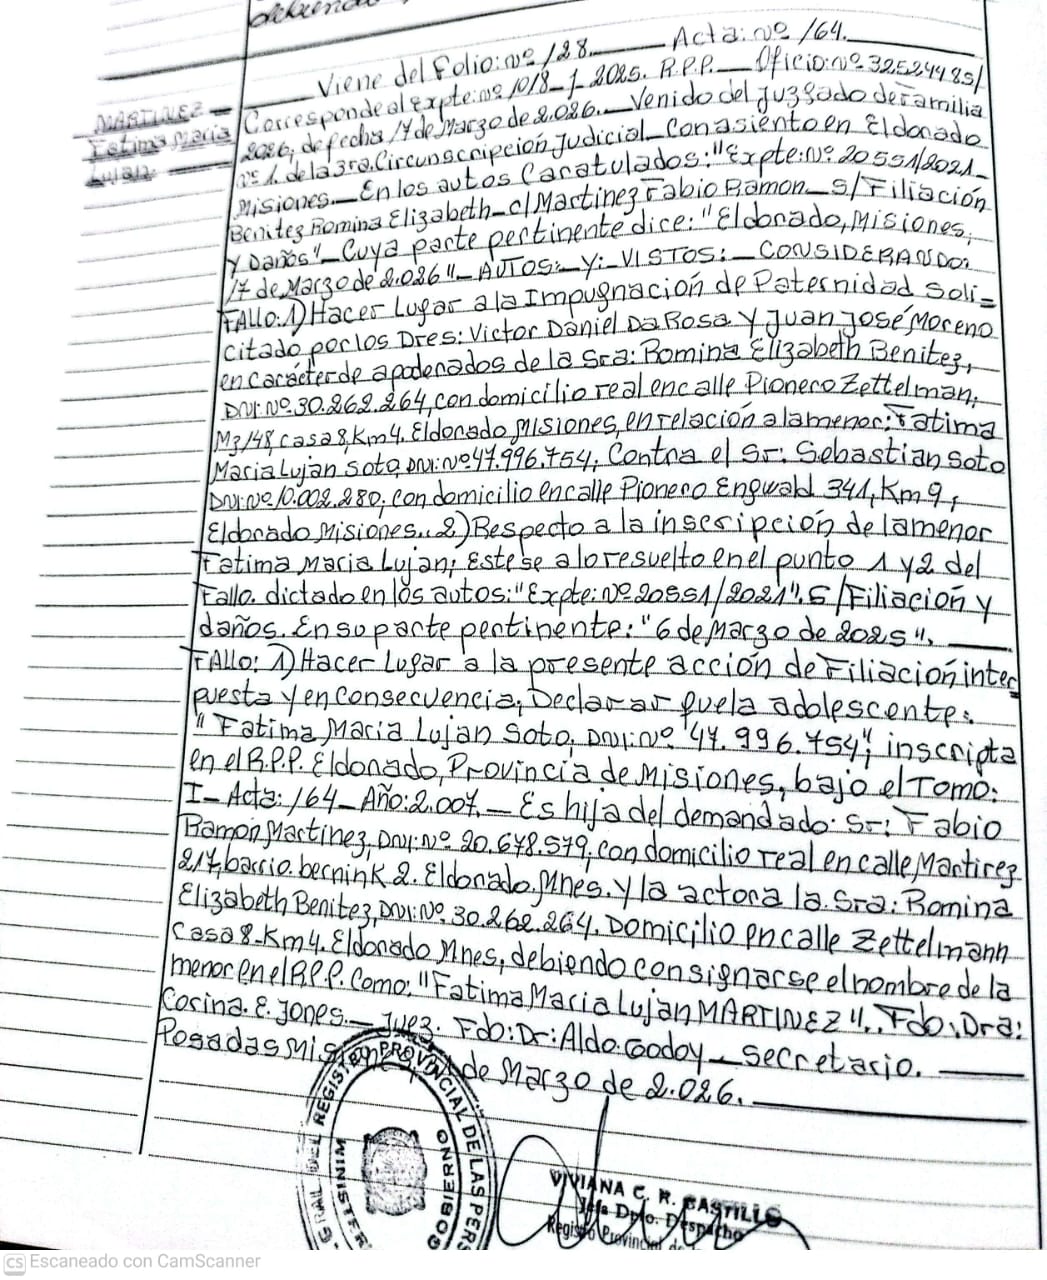 debiendo
Viene del Folio: nº 128. Acta: nº 164.
MARTINEZ
Fatima Maria
Lujan
Corresponde al Expte: nº 1018-J-2025. R.P.P. Oficio: nº 32524485/
2026, de fecha 17 de Marzo de 2.026. Venido del Juzgado de Familia
nº 1. de la 3ra. Circunscripción Judicial Con asiento en Eldorado
Misiones. En los autos Caratulados: "Expte: Nº 20551/2021
Benitez Romina Elizabeth c/ Martinez Fabio Ramon s/ Filiación
y Daños" Cuya parte pertinente dice: "Eldorado, Misiones,
17 de Marzo de 2.026" AUTOS: Y: VISTOS: CONSIDERANDO:
FALLO: 1) Hacer Lugar a la Impugnación de Paternidad Soli=
citado por los Dres: Victor Daniel Da Rosa y Juan José Moreno
en carácter de apoderados de la Sra: Romina Elizabeth Benitez,
DNI: Nº 30.262.264, con domicilio real en calle Pionero Zettelman,
Mz 148, casa 8, Km 4. Eldorado Misiones, en relación a la menor: Fatima
Maria Lujan Soto, DNI: Nº 47.996.754, Contra el Sr: Sebastian Soto
DNI: Nº 10.002.280, con domicilio en calle Pionero Engwald 341, Km 9,
Eldorado Misiones.. 2) Respecto a la inscripción de la menor
Fatima Maria Lujan; Estese a lo resuelto en el punto 1 y 2 del
Fallo. dictado en los autos: "Expte: Nº 20551/2021". S/Filiación y
daños. En su parte pertinente: "6 de Marzo de 2025".
FALLO: 1) Hacer Lugar a la presente acción de Filiación inter=
puesta y en consecuencia, Declarar que la adolescente:
"Fatima Maria Lujan Soto, DNI: Nº "47.996.754", inscripta
en el R.P.P. Eldorado, Provincia de Misiones, bajo el Tomo:
I- Acta: 164- Año: 2.007. Es hija del demandado: Sr: Fabio
Ramon Martinez, DNI: Nº 20.678.579, con domicilio real en calle Martirez
217, barrio. bernink 2. Eldorado, Mnes. y la actora la Sra: Romina
Elizabeth Benitez, DNI: Nº 30.262.264. Domicilio en calle Zettelmann
Casa 8- Km 4. Eldorado Mnes, debiendo consignarse el nombre de la
menor en el R.P.P. Como: "Fatima Maria Lujan MARTINEZ".. Fdo: Dra:
Corina. E. Jones. Juez. Fdo: Dr: Aldo Godoy Secretario.
Posadas Misiones de Marzo de 2.026.
REGISTRO PROVINCIAL DE LAS PERS
MINISTER
GOBIERNO
VIVIANA C. R. CASTILLO
Jefa Dpto. Despacho
Registro Provincial de
CS Escaneado con CamScanner